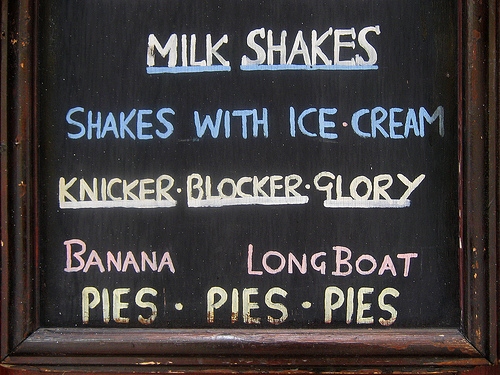 MILK SHAKES
SHAKES WITH ICE·CREAM
KNICKER·BLOCKER·GLORY
BANANA LONGBOAT
PIES · PIES · PIES